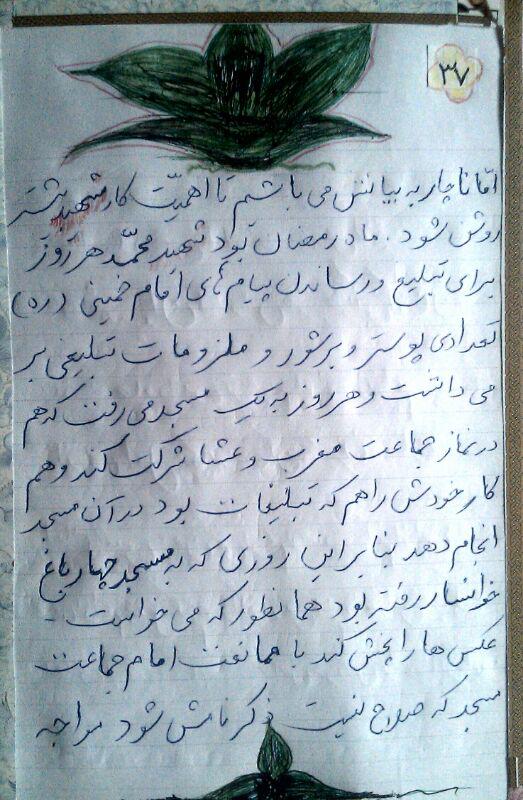 ۳۷
امّا ناچار به بیانش می باشم تا اهمیّت کار شهید بیشتر
روشن شود. ماه رمضان بود شهید محمّد هر روز
برای تبلیغ و رساندن پیام های امام خمینی (ره)
تعدادی پوستر و برشور و ملزومات تبلیغی بر
می داشت و هر روز به یک مسجد می رفت که هم
در نماز جماعت مغرب و عشا شرکت کند و هم
کار خودش را هم که تبلیغات بود در آن مسجد
انجام دهد بنابراین روزی که به مسجد چهارباغ
خوانسار رفته بود همانطور که می خواست -
عکس ها را پخش کند با ممانعت امام جماعت
مسجد که صلاح نیست ذکر نامش شود مواجه